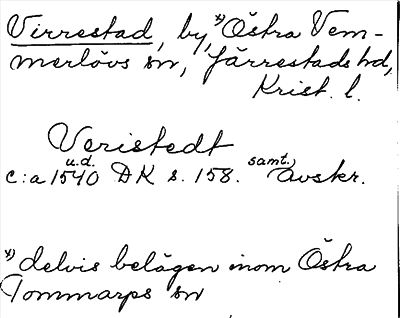 Virrestad, by, x) Östra Vem-
merlövs sn, Järrestads hd,
Krist. l.
Veristedt
u.d. samt.
c:a 1540 DK s. 158. avskr.
x) delvis belägen inom Östra
Tommarps sn